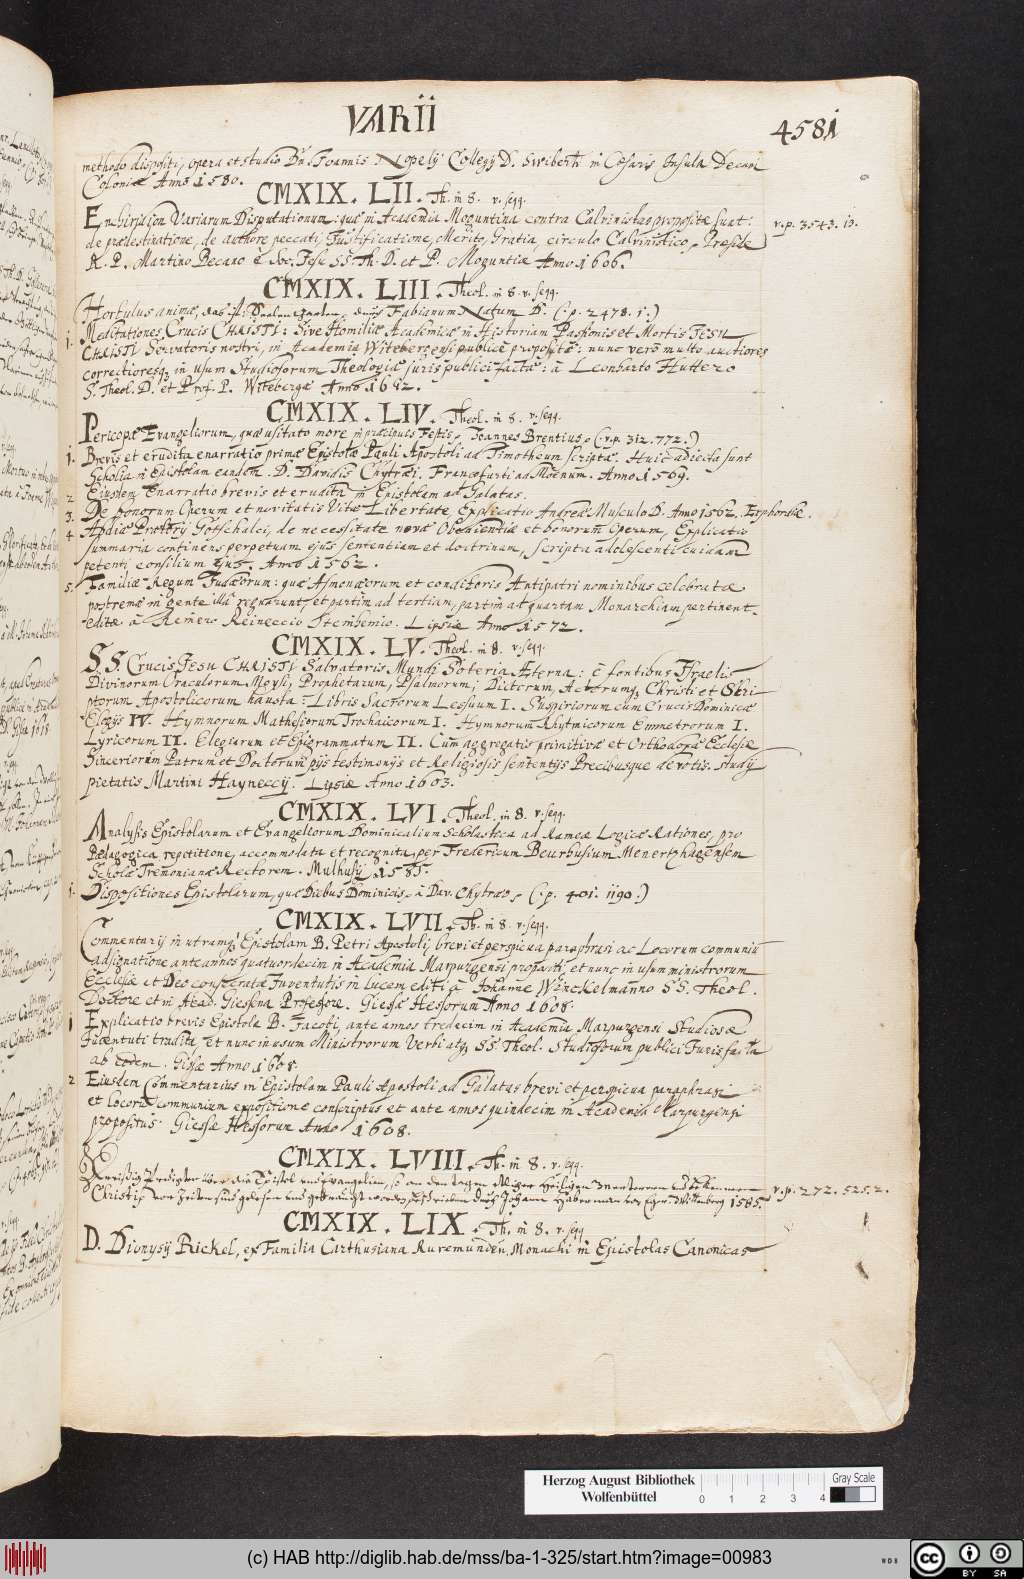 VARII
4581
methodo dispositi, opera et studio Dn̄ Joannis Nopelij Collegij D. Swiberti in Cæsaris Insula Decani
Coloniæ Anno 1580.
CMXIX. LII. Th. in 8. v. seqq.
Enchiridion Variarum Disputationum: quæ in Academia Moguntina contra Calvinistas propositæ sunt: v.p. 3543. is.
de prædestinatione, de authore peccati, Justificatione, Merito, Gratia, circulo Calvinistico, Præside
R. P. Martino Becano è Soc. Jesu SS. Th. D. et P. Moguntiæ Anno. 1606.
CMXIX. LIII. Theol. in 8. v. seqq.
Hortulus animæ, das ist: durch Fabianum Natum D. (: p. 2478. 1.:)
1. Meditationes Crucis CHRISTI: Sive Homiliæ Academicæ in Historiam Passionis et Mortis JESU
CHRISTI Servatoris nostri, in Academia Witebergensi publicè propositæ: nunc verò multo auctiores
correctioresq; in usum Studiosorum Theologiæ juris publici factæ: à Leonharto Huttero
S. Theol. D. et Prof. P. Witebergæ Anno 1612.
CMXIX. LIV. Theol. in 8. v. seqq.
Pericopæ Evangeliorum, quæ usitato more in præcipuis Festis. Joannes Brentius. (: v.p. 312. 772.:)
1. Brevis et erudita enarratio primæ Epistolæ Pauli Apostoli ad Timotheum scriptæ. Huic adiecta sunt
Scholia in Epistolam eandem. D. Davidis Chytræi. Francofurti ad Moenum. Anno 1569.
2 Ejusdem Enarratio brevis et erudita in Epistolam ad Galatas.
3. De bonorum Operum et novitatis Vitæ Libertate, Explicatio Andreæ Musculo D. Anno 1562. Erphordiæ.
4 Abdiæ Prætorij Gotschalci, de necessitate novæ Obedientiæ et bonorum Operum, Explicatio
summaria continens perpetuam ejus sententiam et doctrinam, scripta adolescenti cuidam
petenti consilium ejus. Anno 1562.
5. Familiæ Regum Judæorum: quæ Asmonæorum et conditoris Antipatri nominibus celebratæ
postremæ in gente illa regnarunt, et partim ad tertiam, partim ad quartam Monarchiam pertinent.
editæ à Reinero Reineccio Steinhemio. Lipsiæ Anno 1572.
CMXIX. LV. Theol. in 8. v. seqq.
S.S. Crucis JESU CHRISTI Salvatoris Mundi Soteria Æterna: è fontibus Israelis
Divinorum Oraculorum Moysi, Prophetarum, Psalmorum; Dictorum, Actorumq; Christi et Scri-
ptorum Apostolicorum hausta: Libris Sacrorum Lessuum I. Suspiriorum cum Crucis Dominicæ
Elegijs IV. Hymnorum Mathesiorum Trochaicorum I. Hymnorum Rhytmicorum Emmetrorum I.
Lyricorum II. Elegiarum et Epigrammatum II. Cum aggregatis primitivæ et Orthodoxæ Ecclesiæ
Sinceriorum Patrum et Doctorum pijs testimonijs et Religiosis sententijs Precibusque devotis. studij
pietatis Martini Hayneccij. Lipsiæ Anno 1603.
CMXIX. LVI. Theol. in 8. v. seqq.
Analysis Epistolarum et Evangeliorum Dominicalium Scholastica ad Rameæ Logicæ Rationes, pro
Pædagogica repetitione, accommodata et recognita, per Fredericum Beurhusium Menertzhagensem
Scholæ Tremonianæ Rectorem. Mulhusij 1585.
1. Dispositiones Epistolarum, quæ Diebus Dominicis. à Dav. Chytræo. (: p. 401. 1190.:)
CMXIX. LVII. Th. in 8. v. seqq.
Commentarij in utramq; Epistolam B. Petri Apostoli, brevi et perspicua paraphrasi ac Locorum communiū
adsignatione ante annos quatuordecim in Academia Marpurgensi propositi, et nunc in usum ministrorum
Ecclesiæ et Deo consecratæ Juventutis in lucem editi à Johanne Winckelmanno SS. Theol.
Doctore et in Acad. Giessena Professore. Giessæ Hessorum Anno 1608.
1 Explicatio brevis Epistolæ B. Jacobi, ante annos tredecim in Academia Marpurgensi Studiosæ
Juventuti tradita, et nunc in usum Ministrorum Verbi atq; SS. Theol. Studiosorum publici Juris facta
ab eodem. Gissæ Anno 1608.
2 Ejusdem Commentarius in Epistolam Pauli Apostoli ad Galatas brevi et perspicua paraphrasi
et Locorū communium expositione conscriptus et ante annos quindecim in Academia Marpurgensi
propositus. Giessæ Hessorum Anno 1608.
CMXIX. LVIII. Th. in 8. v. seqq.
Predigten über die Epistel und Evangelien, so an den tagen Heiligen v.p. 272. 525. 2.
Christi, vor zeiten sind gelesen und gebraucht worden, geschrieben durch Johann Habermann von Eger. Wittenberg 1585.
CMXIX. LIX. Th. in 8. v. seqq
D. Dionysij Rickel, ex Familia Carthusiana Ruremunden. Monachi in Epistolas Canonicas
Herzog August Bibliothek
Wolfenbüttel
0 1 2 3 4
Gray Scale
(c) HAB http://diglib.hab.de/mss/ba-1-325/start.htm?image=00983
WDB
cc BY SA